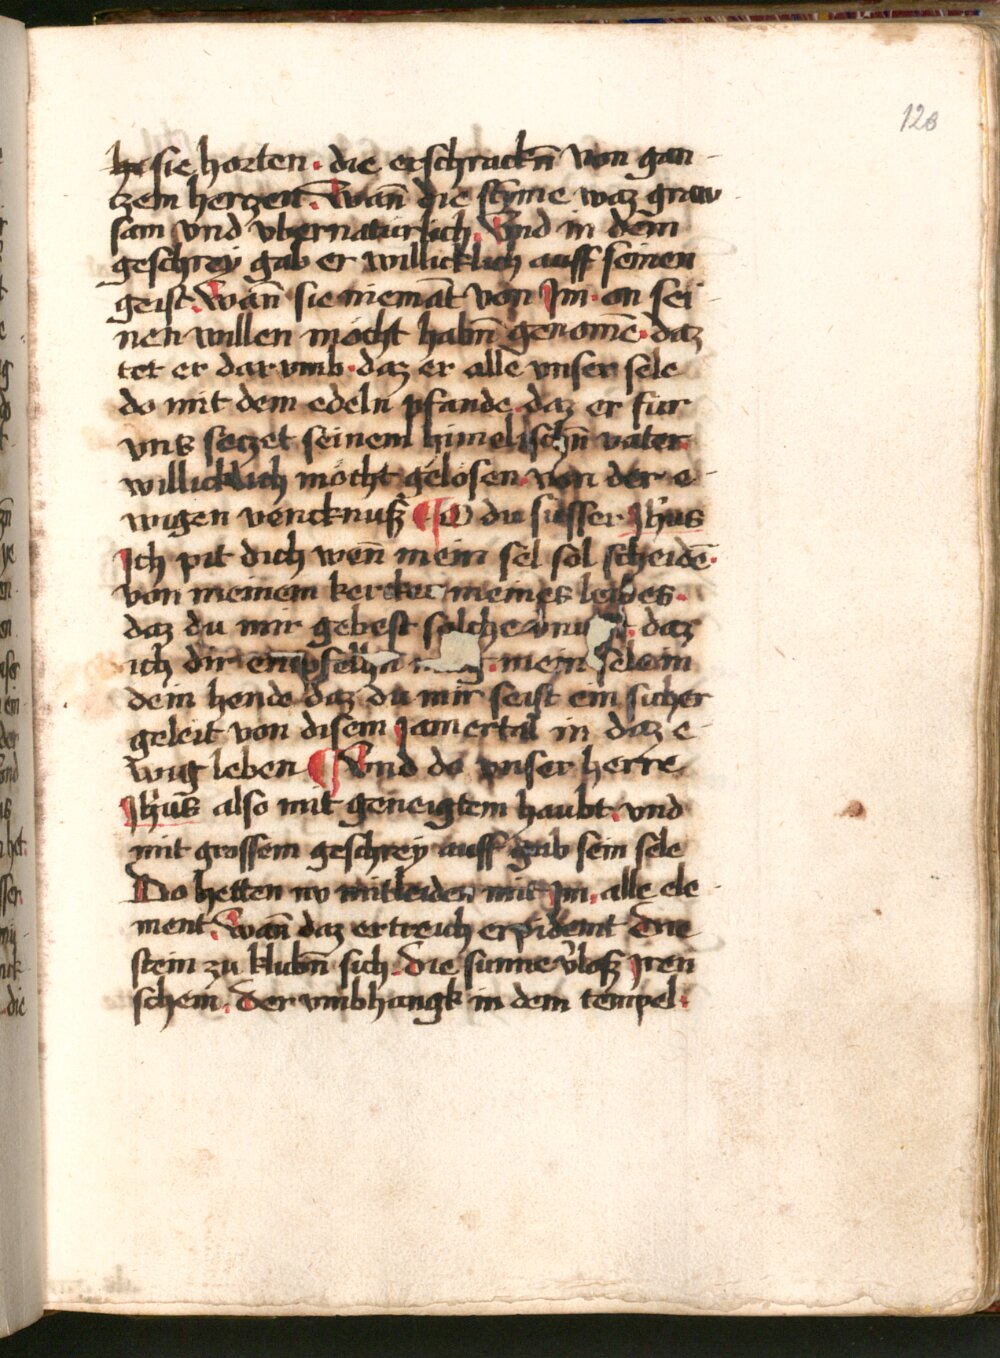 120
sie horten · die erschrackn̄ von gan-
tzem hertzen̄. Wan̄ die stȳme waz graw
sam vnd vbernatürlich. Vnd in dem
geschrey gab er willicklich auff seinen
geist. Wan̄ sie niemāt von Jm on sei
nen willen möcht habn̄ genomē · daz
tet er darvmb · daz er alle vnser sele
do mit dem edeln pfande daz er für
vns setzet seinem himelischn̄ vater
willicklich möcht gelösen von der e-
wigen vencknuß ¶ O du süsser Jhūs
Jch pit dich wen̄ mein sel sol scheidē ·
von meinem kercker meines leibes ·
daz du mir gebest solche daz
ich dir empfelhn̄ mein sele in
dein hende daz du mir seist ein sicher
geleit von disem Jamertal in daz e-
wig leben ¶ Vnd do vnser herre
Jhūs also mit geneigtem haubt · vnd
mit grossem geschrey auff gab sein sele
Do hetten nv mitleiden mit Jm · alle ele
ment. Wan̄ daz ertreich erpidemt die
stein zu klubn̄ sich. die sunne v̓loß Jren
schein. der vmbhangk in dem tempel ·